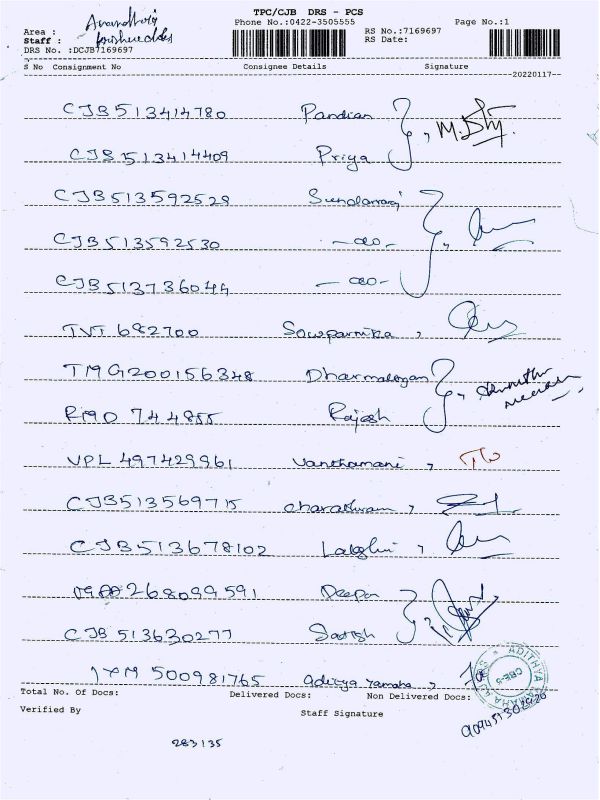 TPC/CJB DRS - PCS
Phone No.:0422-3505555
Page No.:1
Area :
Staff :
DRS No. :DCJB7169697
RS No.:7169697
RS Date:
S No Consignment No Consignee Details Signature
--20220117--
CJB513414780 Pandian
CJB513414409 Priya
CJB513592529 Sundarraj
CJB513592530 -do-
CJB513736044 -do-
TVT 682700 Sowparnika,
TMG200156348 Dharmalogan
RMD 744855 Rajesh
VPL 497429961 Vanthamani,
CJB513569715
CJB513678102
268099591 Deepan
CJB 513630277 Satish
500981765 Aditya Yamaha,
ADITHYA YAMAHA
CBE-6
Total No. Of Docs: Delivered Docs: Non Delivered Docs:
Verified By Staff Signature
283135